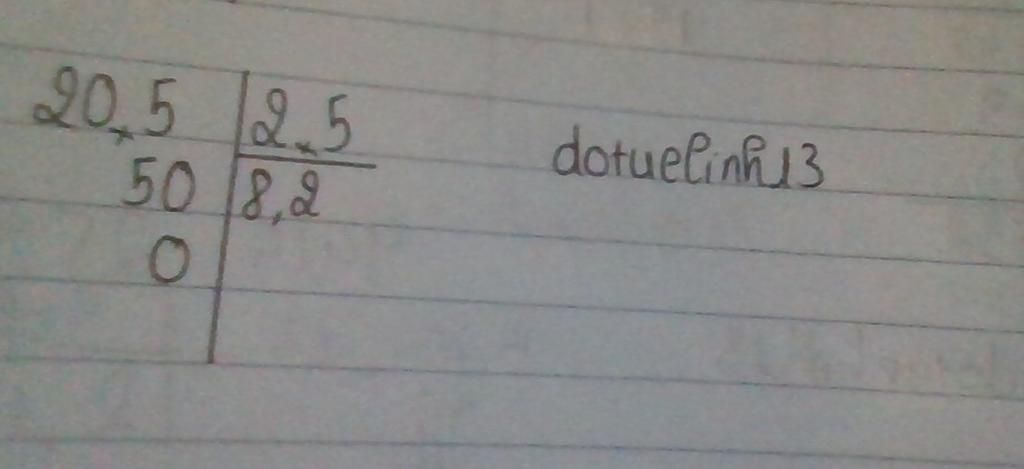 20,5 2,5 dotuelinh13
50 8,2
0